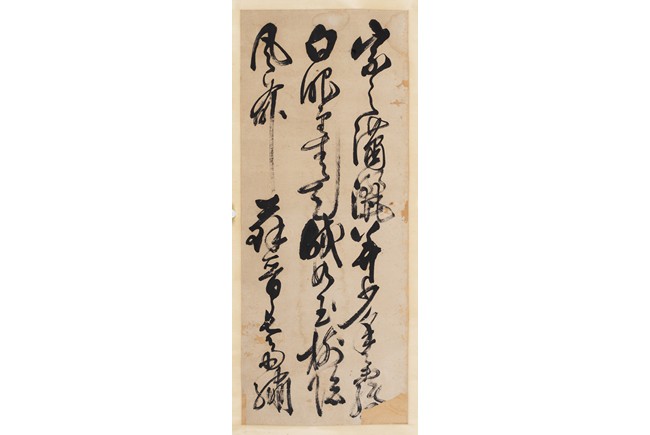 宗之瀟灑美少年舉觴
白眼望青天皎如玉樹臨
風前蘇晉長齋繡